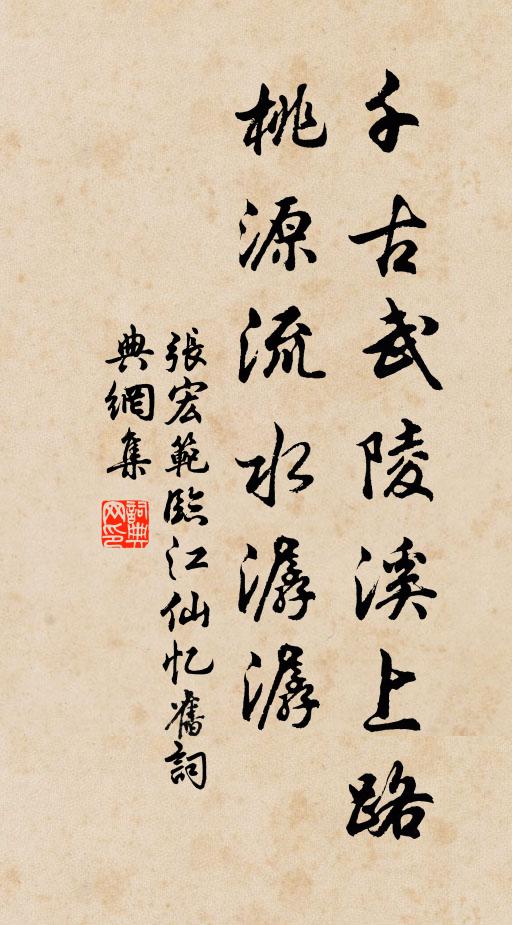 千古武陵溪上路
桃源流水潺潺
張宏範臨江仙忆舊詞
典網集
詞典网印